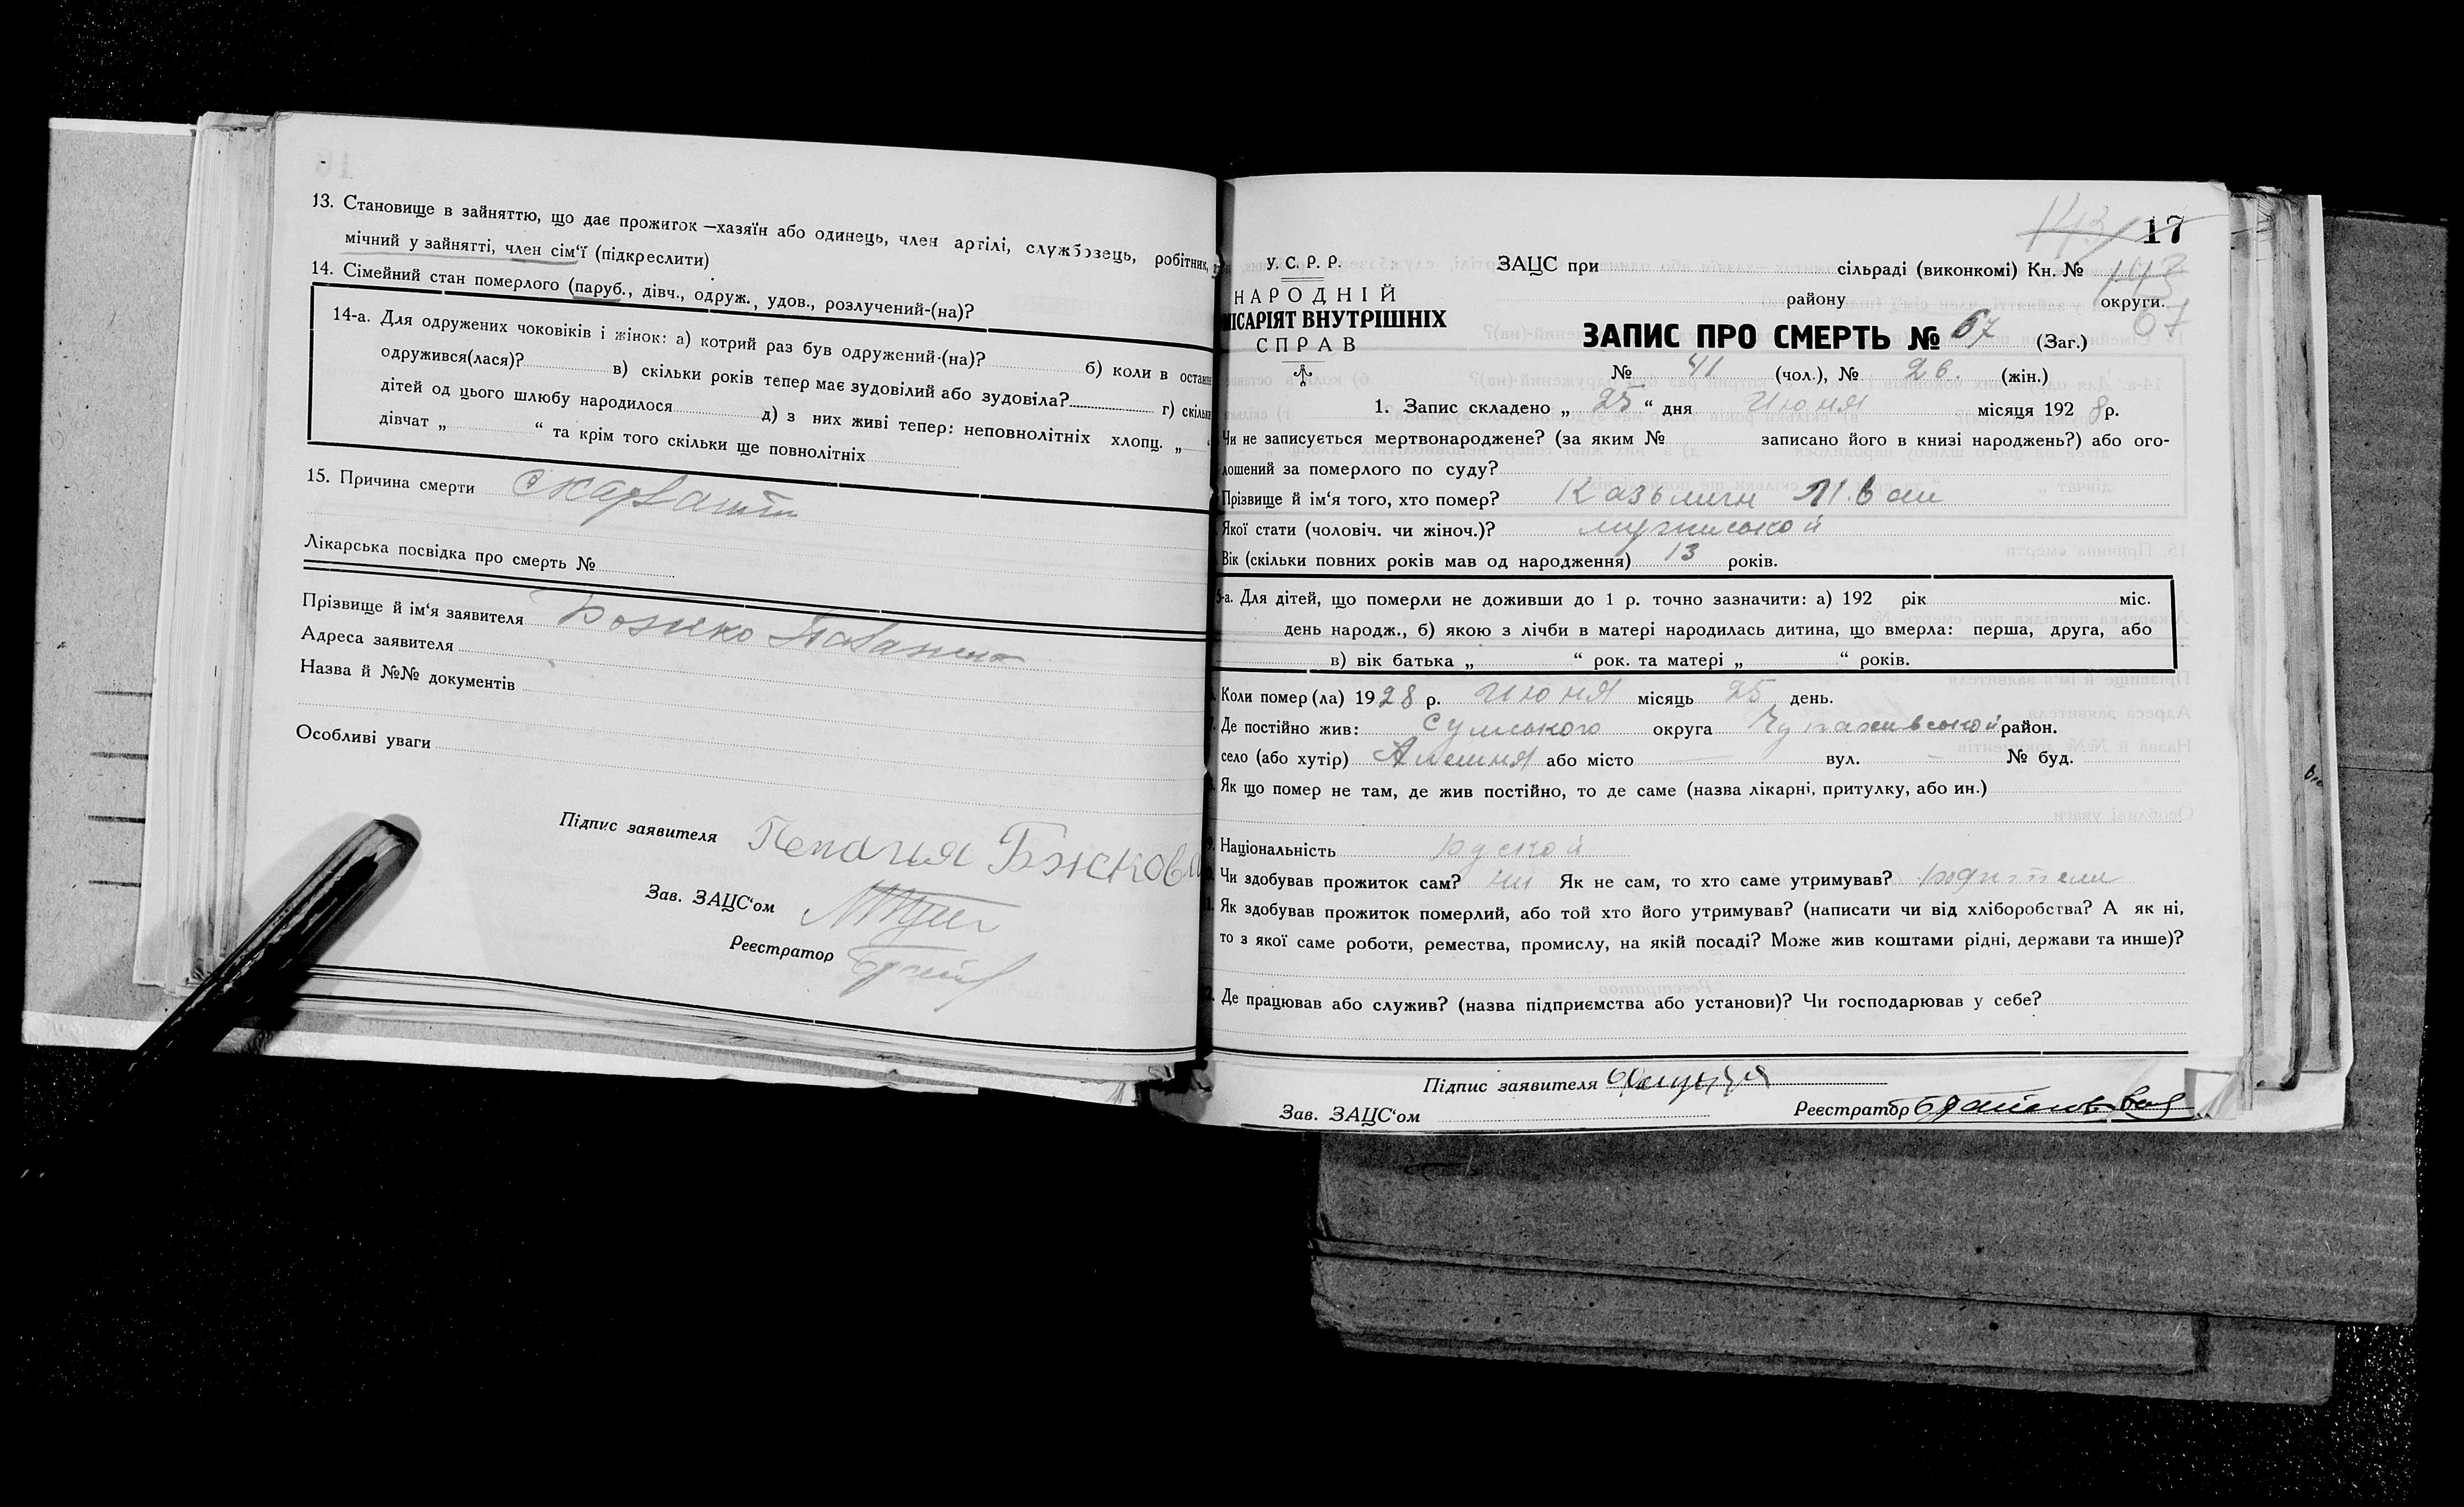 13. Становище в зайняттю, що дає прожиток —хазяїн або одинець, член артілі, службовець, робітник,
мічний у зайнятті, член сім'ї (підкреслити)
14. Сімейний стан померлого (паруб., дівч., одруж., удов., розлучений-(на)?
14-а. Для одружених чоковіків і жінок: а) котрий раз був одружений-(на)? б) коли в останн
одружився(лася)? в) скільки років тепер має зудовілий або зудовіла? г) скільки
дітей од цього шлюбу народилося д) з них живі тепер: неповнолітніх хлопц. „
дівчат „ “ та крім того скільки ще повнолітніх
15. Причина смерти
Лікарська посвідка про смерть №
Прізвище й ім'я заявителя
Адреса заявителя
Назва й №№ документів
Особливі уваги
Підпис заявителя
Зав. ЗАЦС'ом
Реєстратор
17
143
67
У. С. Р. Р.
НАРОДНІЙ
ІСАРІЯТ ВНУТРІШНІХ
СПРАВ
ЗАЦС при сільраді (виконкомі) Кн. №
району округи.
ЗАПИС ПРО СМЕРТЬ № 67 (Заг.)
№ 41 (чол.), № 26. (жін.)
1. Запис складено „ 25 “ дня Июня місяця 1928 р.
Чи не записується мертвонароджене? (за яким № записано його в книзі народжень?) або ого-
лошений за померлого по суду?
Прізвище й ім'я того, хто помер? Казьмин Иван
Якої стати (чоловіч. чи жіноч.)?
Вік (скільки повних років мав од народження) 13 років.
5-а. Для дітей, що померли не доживши до 1 р. точно зазначити: а) 192 рік міс.
день народж., б) якою з лічби в матері народилась дитина, що вмерла: перша, друга, або
в) вік батька „ “ рок. та матері „ “ років.
Коли помер(ла) 1928 р. Июня місяць 25 день.
Де постійно жив: Сумського округа район.
село (або хутір) Алешня або місто — вул. – № буд.
Як що помер не там, де жив постійно, то де саме (назва лікарні, притулку, або ин.)
Національність руской
Чи здобував прожиток сам? ни Як не сам, то хто саме утримував? родители
Як здобував прожиток померлий, або той хто його утримував? (написати чи від хліборобства? А як ні,
то з якої саме роботи, ремества, промислу, на якій посаді? Може жив коштами рідні, держави та инше)?
Де працював або служив? (назва підприємства або установи)? Чи господарював у себе?
Підпис заявителя
Зав. ЗАЦС'ом Реєстратор